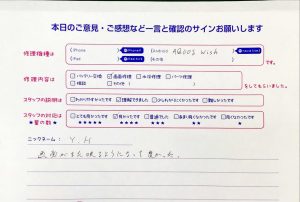 本日のご意見・ご感想など一言と確認のサインお願いします
修理機種は
iPhone
Android AQUOS wish
iPad
その他
修理内容は
バッテリー交換 ☑画面修理 水没修理 パーツ修理
相談 その他
をしてもらいました。
スタッフの説明は
わかりやすかったです ☑理解できました 少しわかりにくかったです 難しかったです
スタッフの対応は
★星の数★
とても良かった ☑良かった 普通でした あまり良くなかったです 良くなかったです
★★★★★ ★★★★ ★★★ ★★ ★
ニックネーム: Y.H
画面がまた映るようになって良かった。